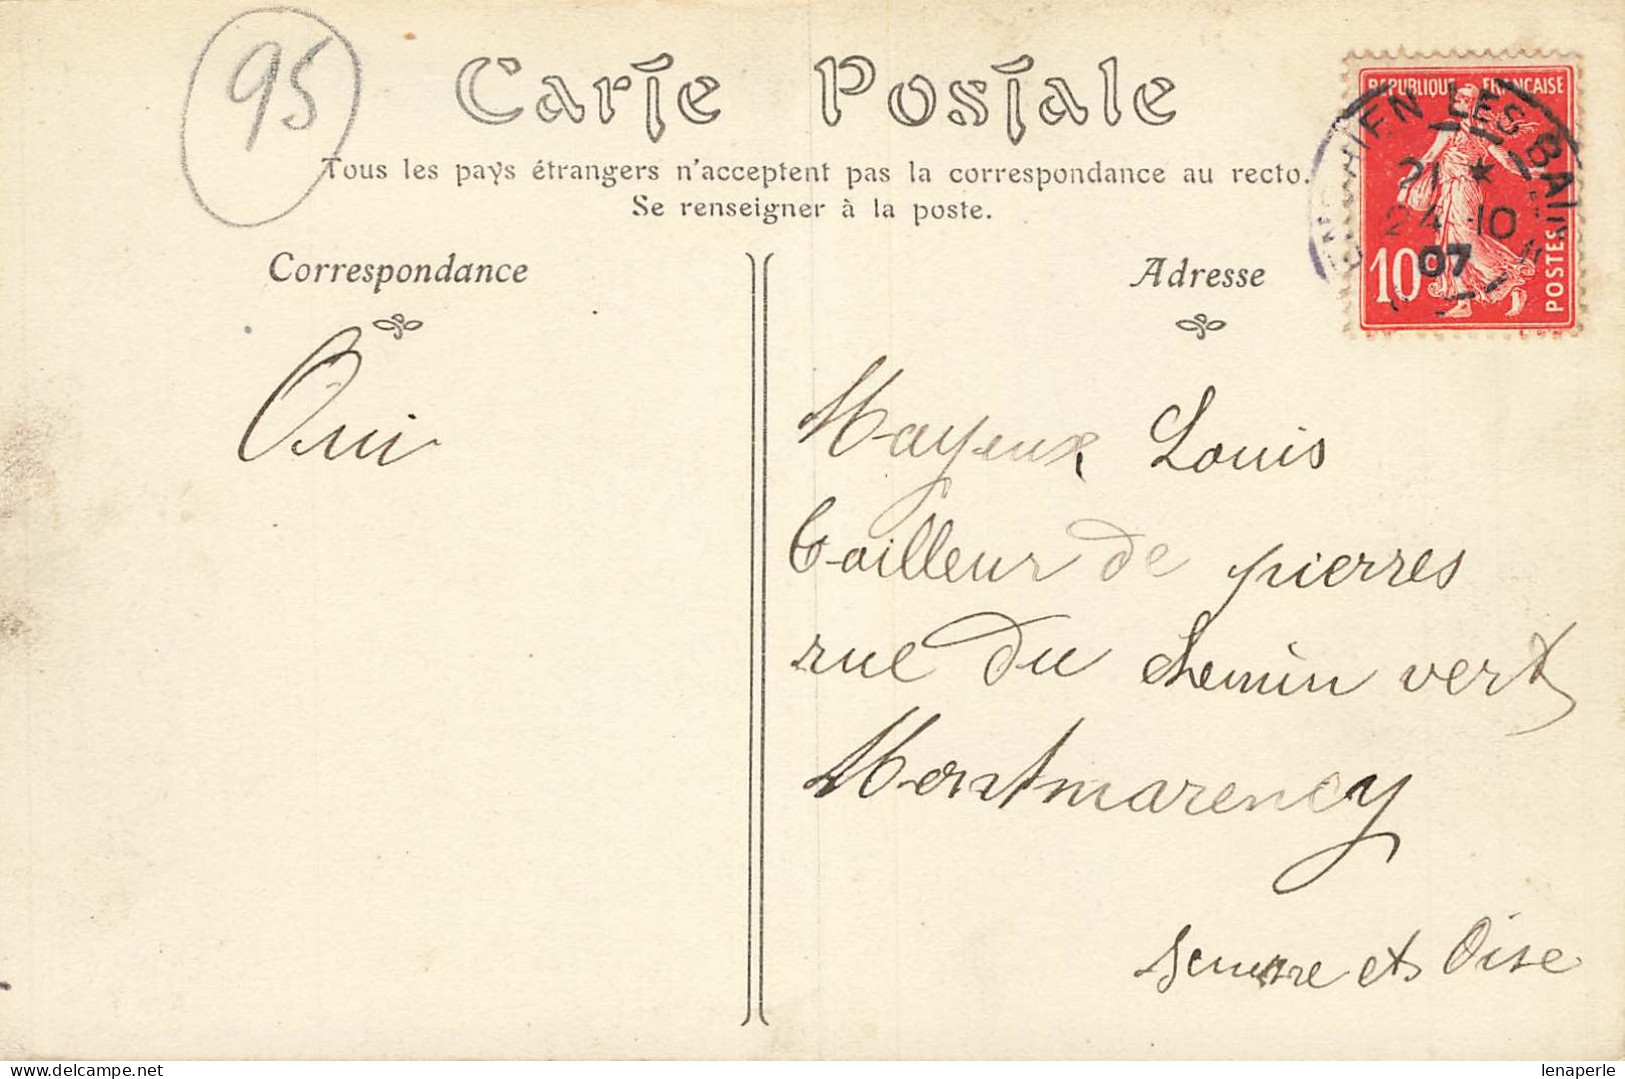 95
Carte Postale
Tous les pays étrangers n'acceptent pas la correspondance au recto.
Se renseigner à la poste.
REPUBLIQUE FRANÇAISE
POSTES
10
LES BAINS
21 *
24 10
07
Correspondance
Oui
Adresse
Mayeux Louis
tailleur de pierres
rue du chemin vert
Montmarency
et Oise
delcampe.net
lenaperle